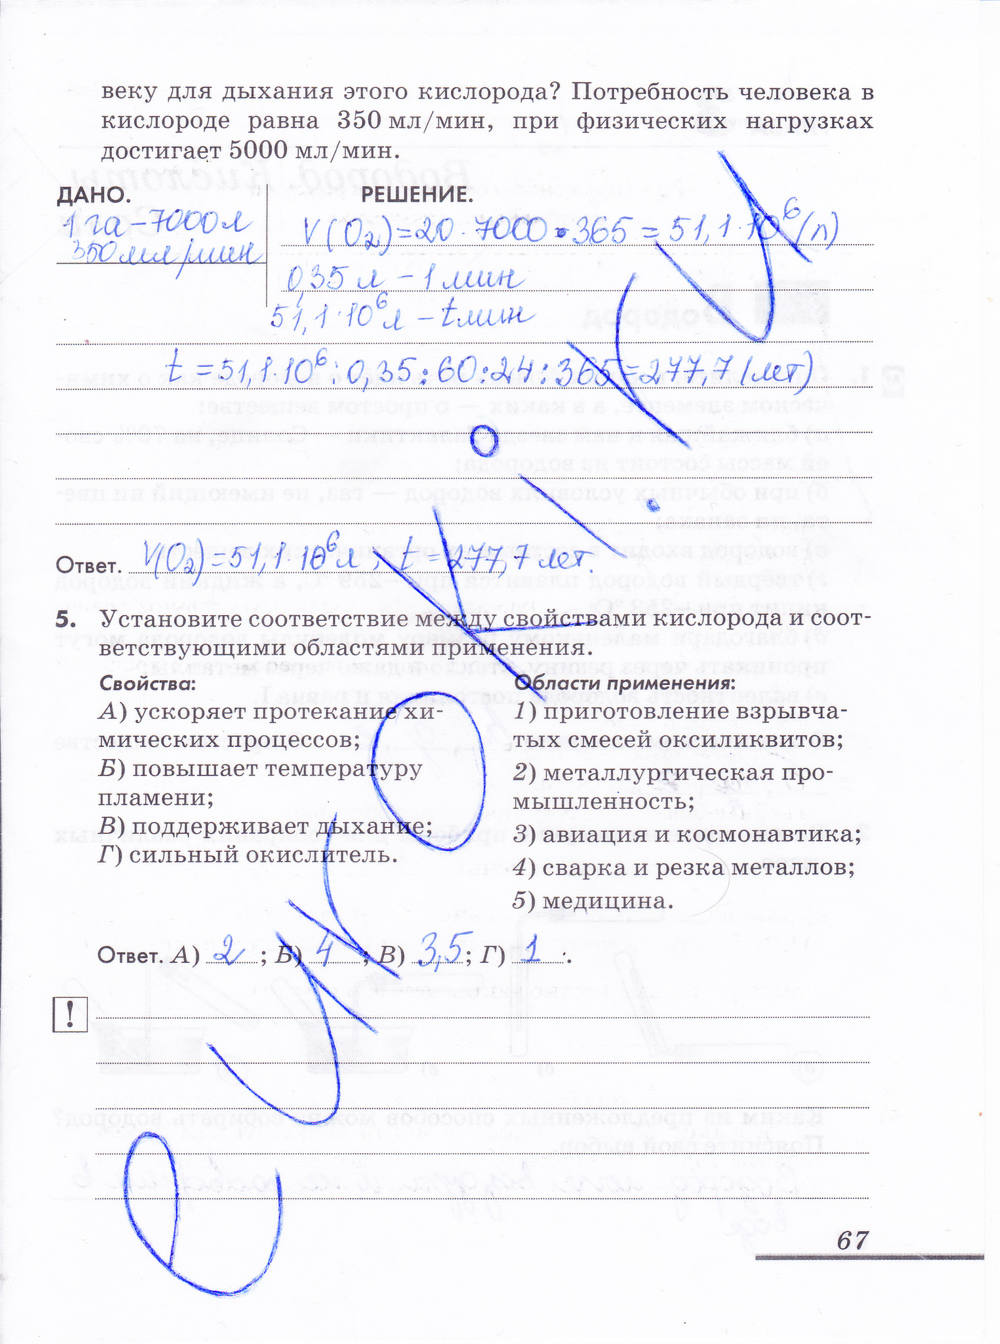 веку для дыхания этого кислорода? Потребность человека в
кислороде равна 350 мл/мин, при физических нагрузках
достигает 5000 мл/мин.
ДАНО.
РЕШЕНИЕ.
1 га – 7000 л
350 мл/мин
V(O₂) = 20 · 7000 · 365 = 51,1 · 10⁶ (л)
0,35 л – 1 мин
51,1 · 10⁶ л – t мин
t = 51,1 · 10⁶ : 0,35 : 60 : 24 : 365 = 277,7 (лет)
Ответ. V(O₂) = 51,1 · 10⁶ л ; t = 277,7 лет.
5. Установите соответствие между свойствами кислорода и соот-
ветствующими областями применения.
Свойства:
А) ускоряет протекание хи-
мических процессов;
Б) повышает температуру
пламени;
В) поддерживает дыхание;
Г) сильный окислитель.
Области применения:
1) приготовление взрывча-
тых смесей оксиликвитов;
2) металлургическая про-
мышленность;
3) авиация и космонавтика;
4) сварка и резка металлов;
5) медицина.
Ответ. А) 2 ; Б) 4 ; В) 3,5 ; Г) 1 .
!
67